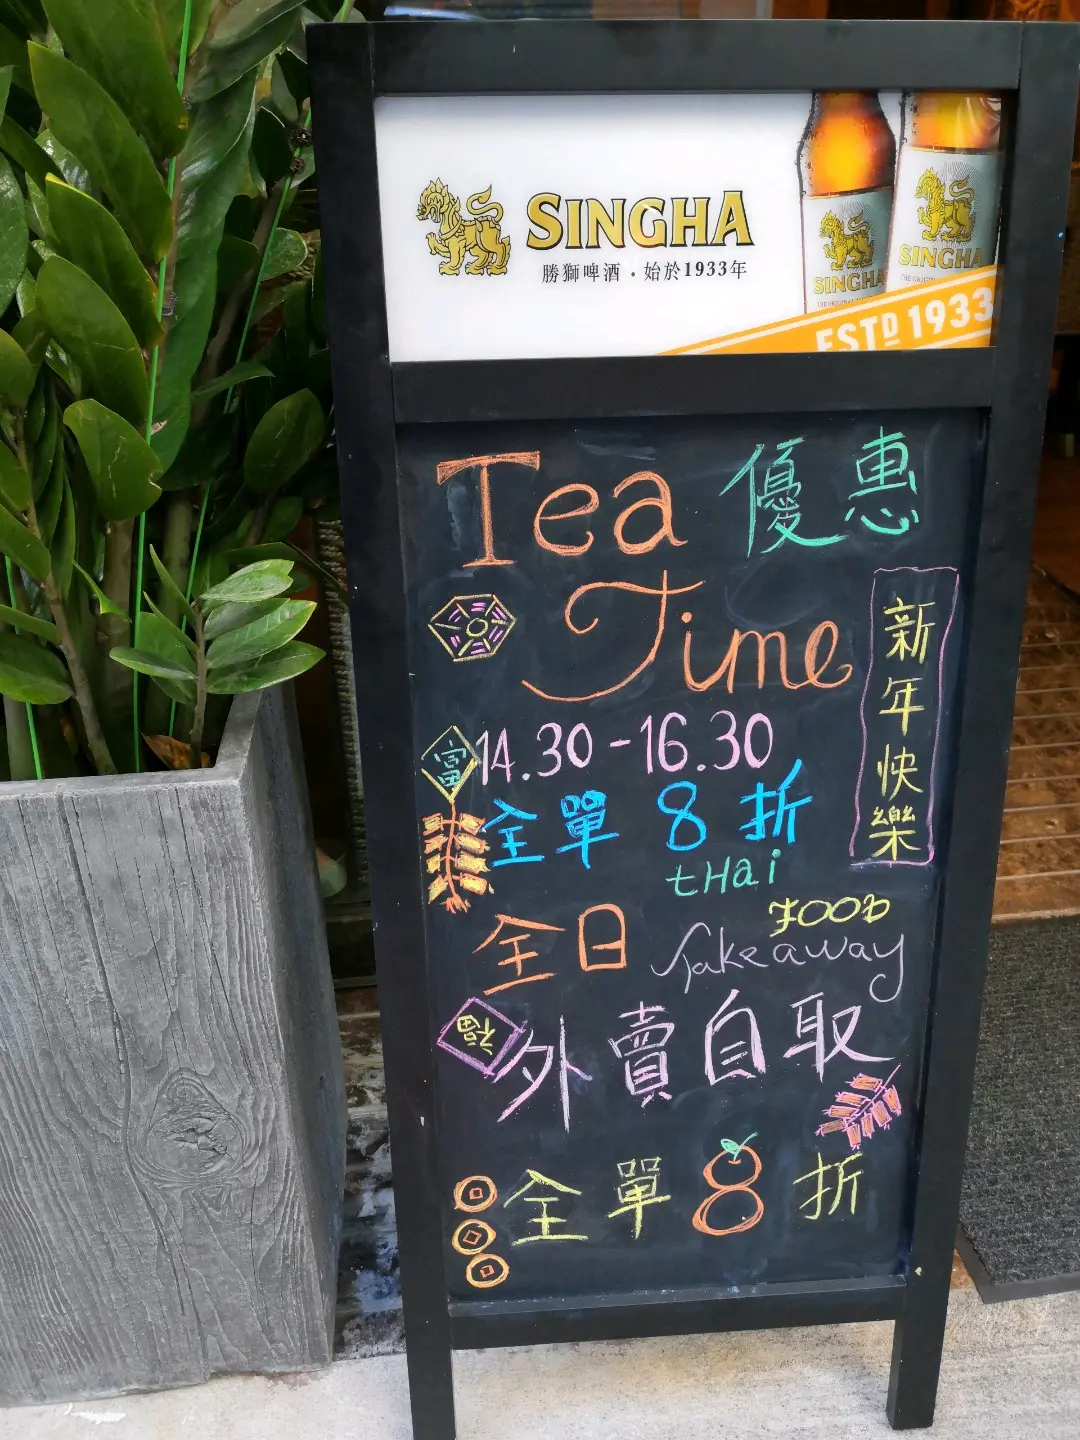 SINGHA
勝獅啤酒・始於1933年
SINGHA
SINGHA
ESTD 1933
Tea 優惠
Time
新年快樂
14.30 - 16.30
富
全單 8 折
tHai
FOOD
全日 Takeaway
福
外賣自取
全單 8 折